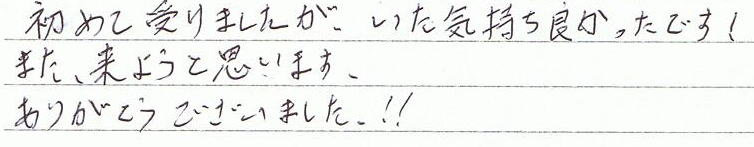 初めて受けましたが、いた気持ち良かったです!
また、来ようと思います、
ありがとうございました.!!